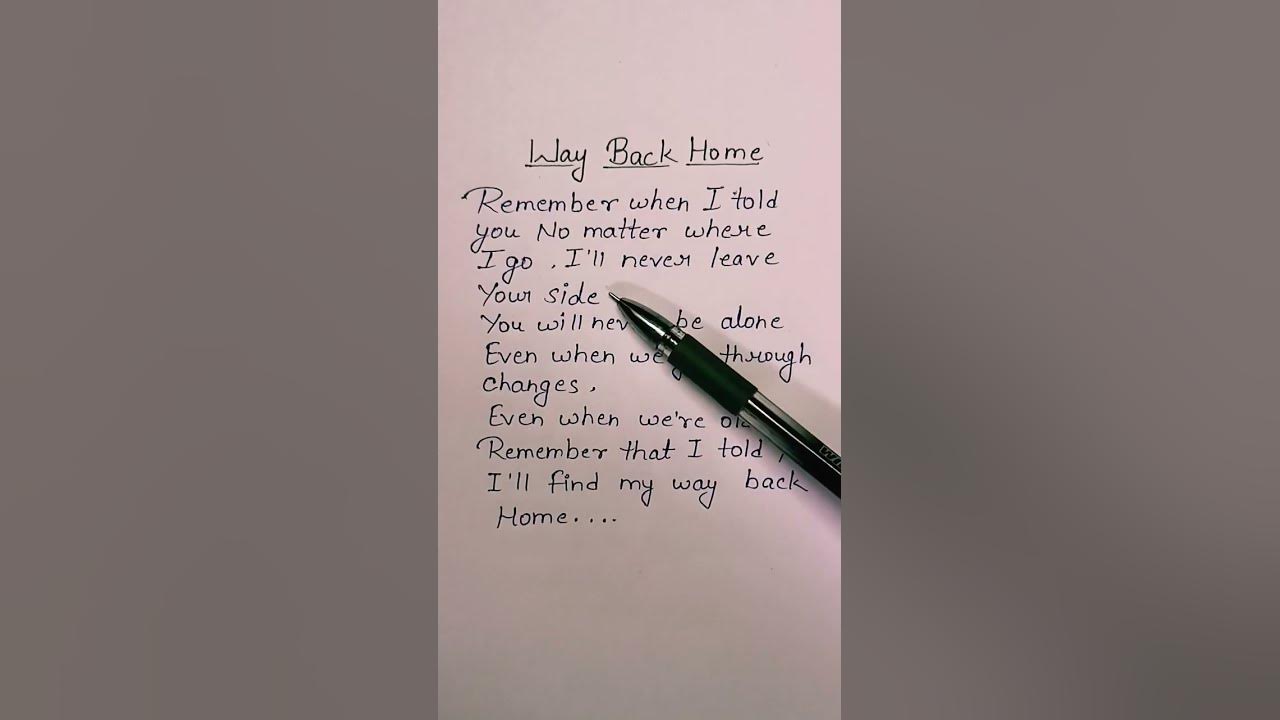 Way Back Home
Remember when I told
you No matter where
I go , I'll never leave
Your side
You will be alone
Even when through
changes ,
Even when we're
Remember that I told ,
I'll find my way back
Home....